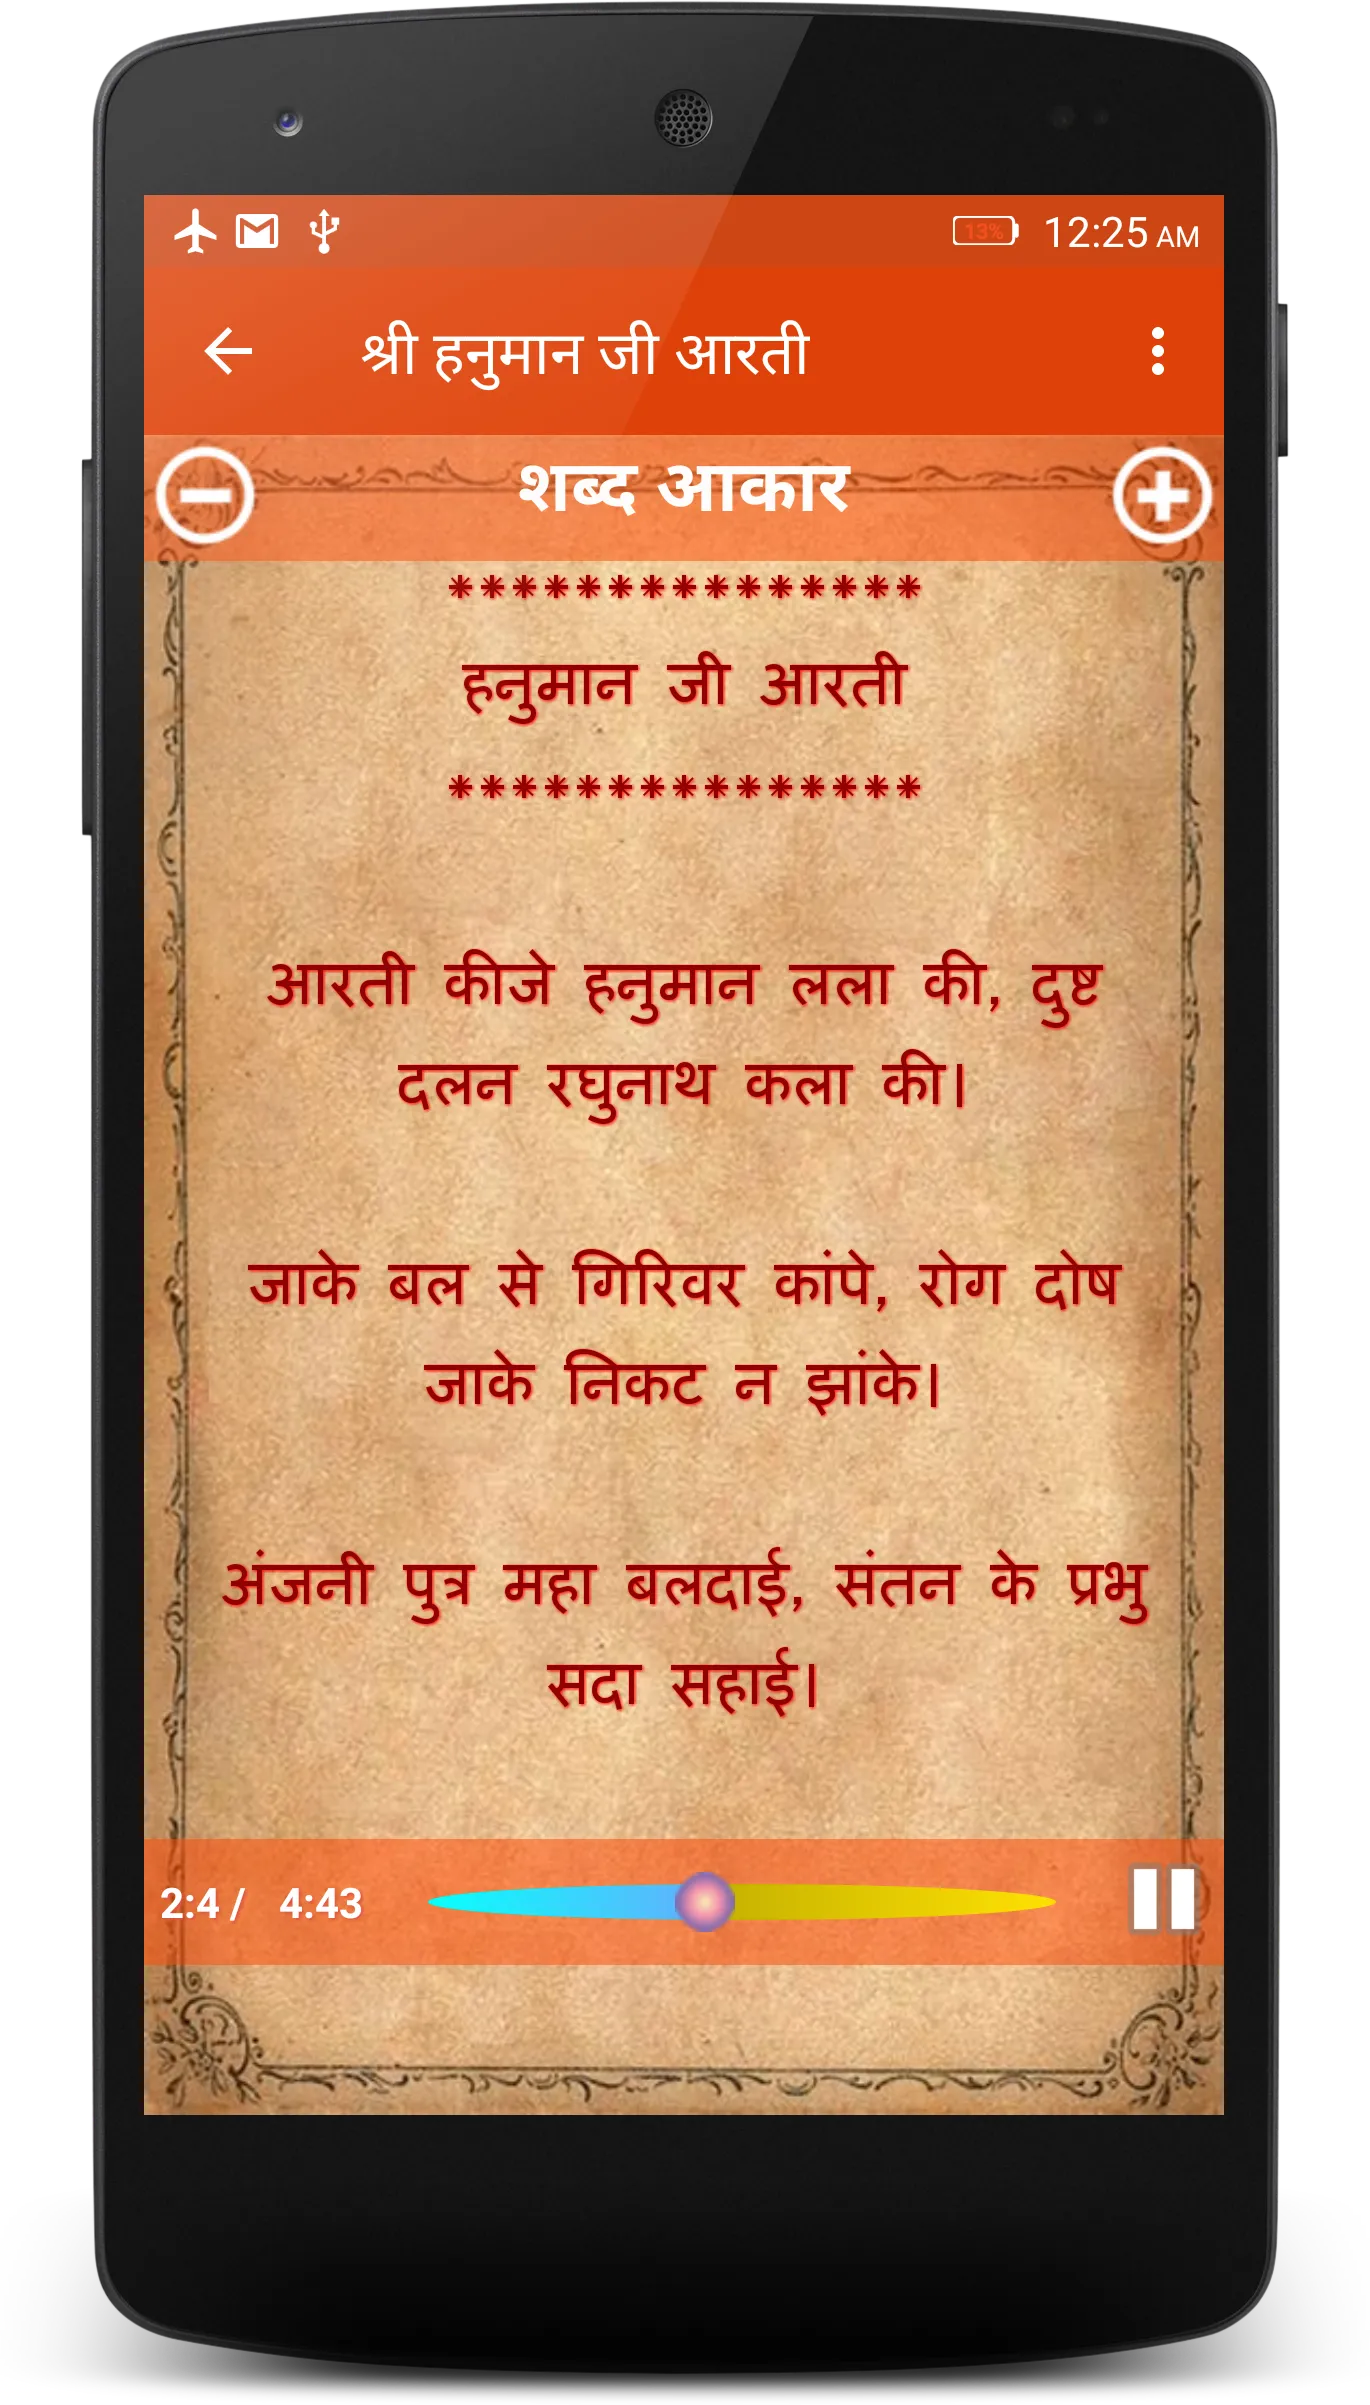 13% 12:25 AM
श्री हनुमान जी आरती
शब्द आकार
***************
हनुमान जी आरती
***************
आरती कीजे हनुमान लला की, दुष्ट
दलन रघुनाथ कला की।
जाके बल से गिरिवर कांपे, रोग दोष
जाके निकट न झांके।
अंजनी पुत्र महा बलदाई, संतन के प्रभु
सदा सहाई।
2:4 / 4:43